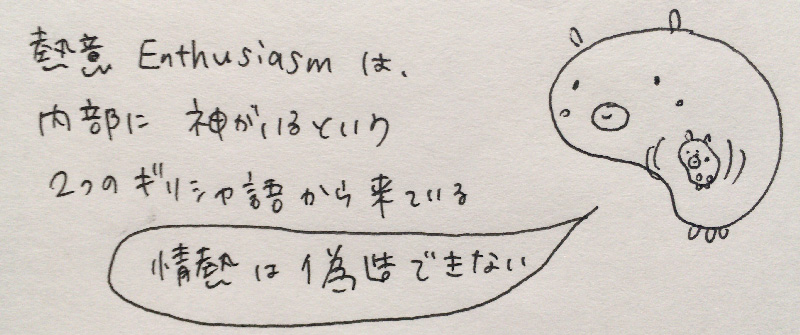 熱意 Enthusiasm は、
内部に 神がいるという
2つのギリシャ語から来ている
情熱は偽造できない